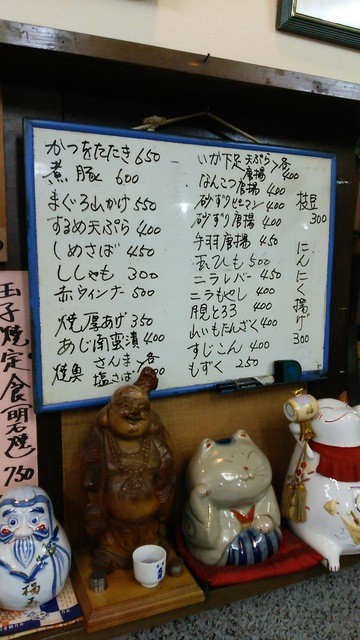 かつをたたき 650
煮豚 600
まぐろ山かけ 550
するめ天ぷら 400
しめさば 450
ししゃも 300
赤ウィンナー 500
焼厚あげ 350
あじ南蛮漬 400
焼魚 さんま 各
塩さば
いか下足 天ぷら 各
唐揚 400
なんこつ唐揚 400
砂ずりピーマン 400
砂ずり唐揚 400
手羽唐揚 450
えいひれ 500
ニラレバー 450
ニラもやし 400
400
山いもたんざく 400
すじこん 400
もずく 250
枝豆
300
にんにく揚げ
300
玉子焼定食 明石焼
750
福